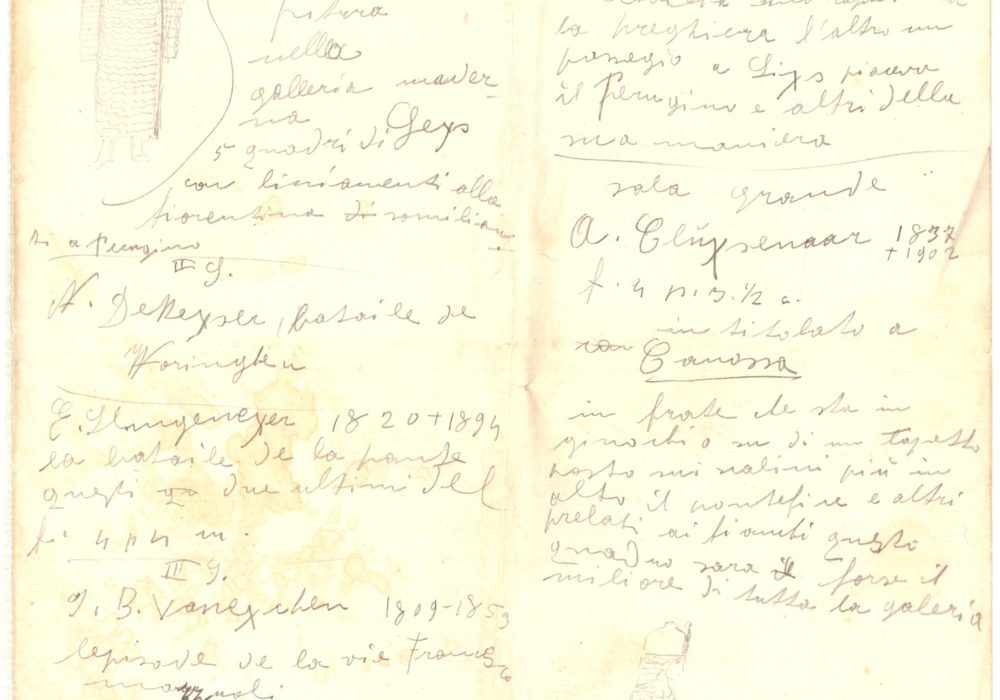 pitura
nella
galleria moder-
na
5 quadri di Geys
con liniamenti alla
fiorentina di somilian
ti a Perugino
II G.
N. DeKeyser, bataile de
Woringhen
E. Slingeneyer 1820+1894
la bataile de la
questi due ultimi del
f. 4 p 4 m.
III G.
J. B. Vaneychen 1809-1853
lepisode de la vie
la preghiera l'altro un
passegio a Liys piaceva
il Perugino e altri della
sua maniera
sala grande
A. Clüysenaar 1837
+1902
f. 4 p. 3. 1/2 a.
intitolato a
Canossa
un frate che sta in
ginochio su di un tapetto
posto sui salini più in
alto il pontefice e altri
prelati ai fianchi questo
quadro sara forse il
miliore di tutta la galeria